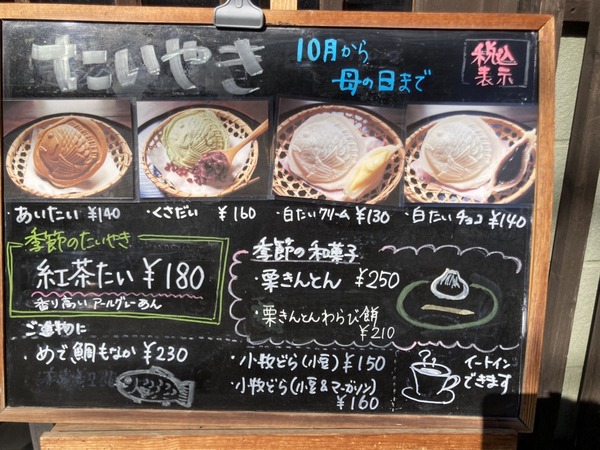 たいやき
10月から
母の日まで
税込
表示
・あいたい ¥140
・くさだい ¥160
・白たいクリーム ¥130
・白たいチョコ ¥140
季節のたいやき
紅茶たい ¥180
香り高いアールグレーあん
季節の和菓子
・栗きんとん ¥250
・栗きんとんわらび餅
¥210
ご進物に
・めで鯛もなか ¥230
・小牧どら(小豆) ¥150
・小牧どら(小豆&マーガリン)
¥160
イートイン
できます